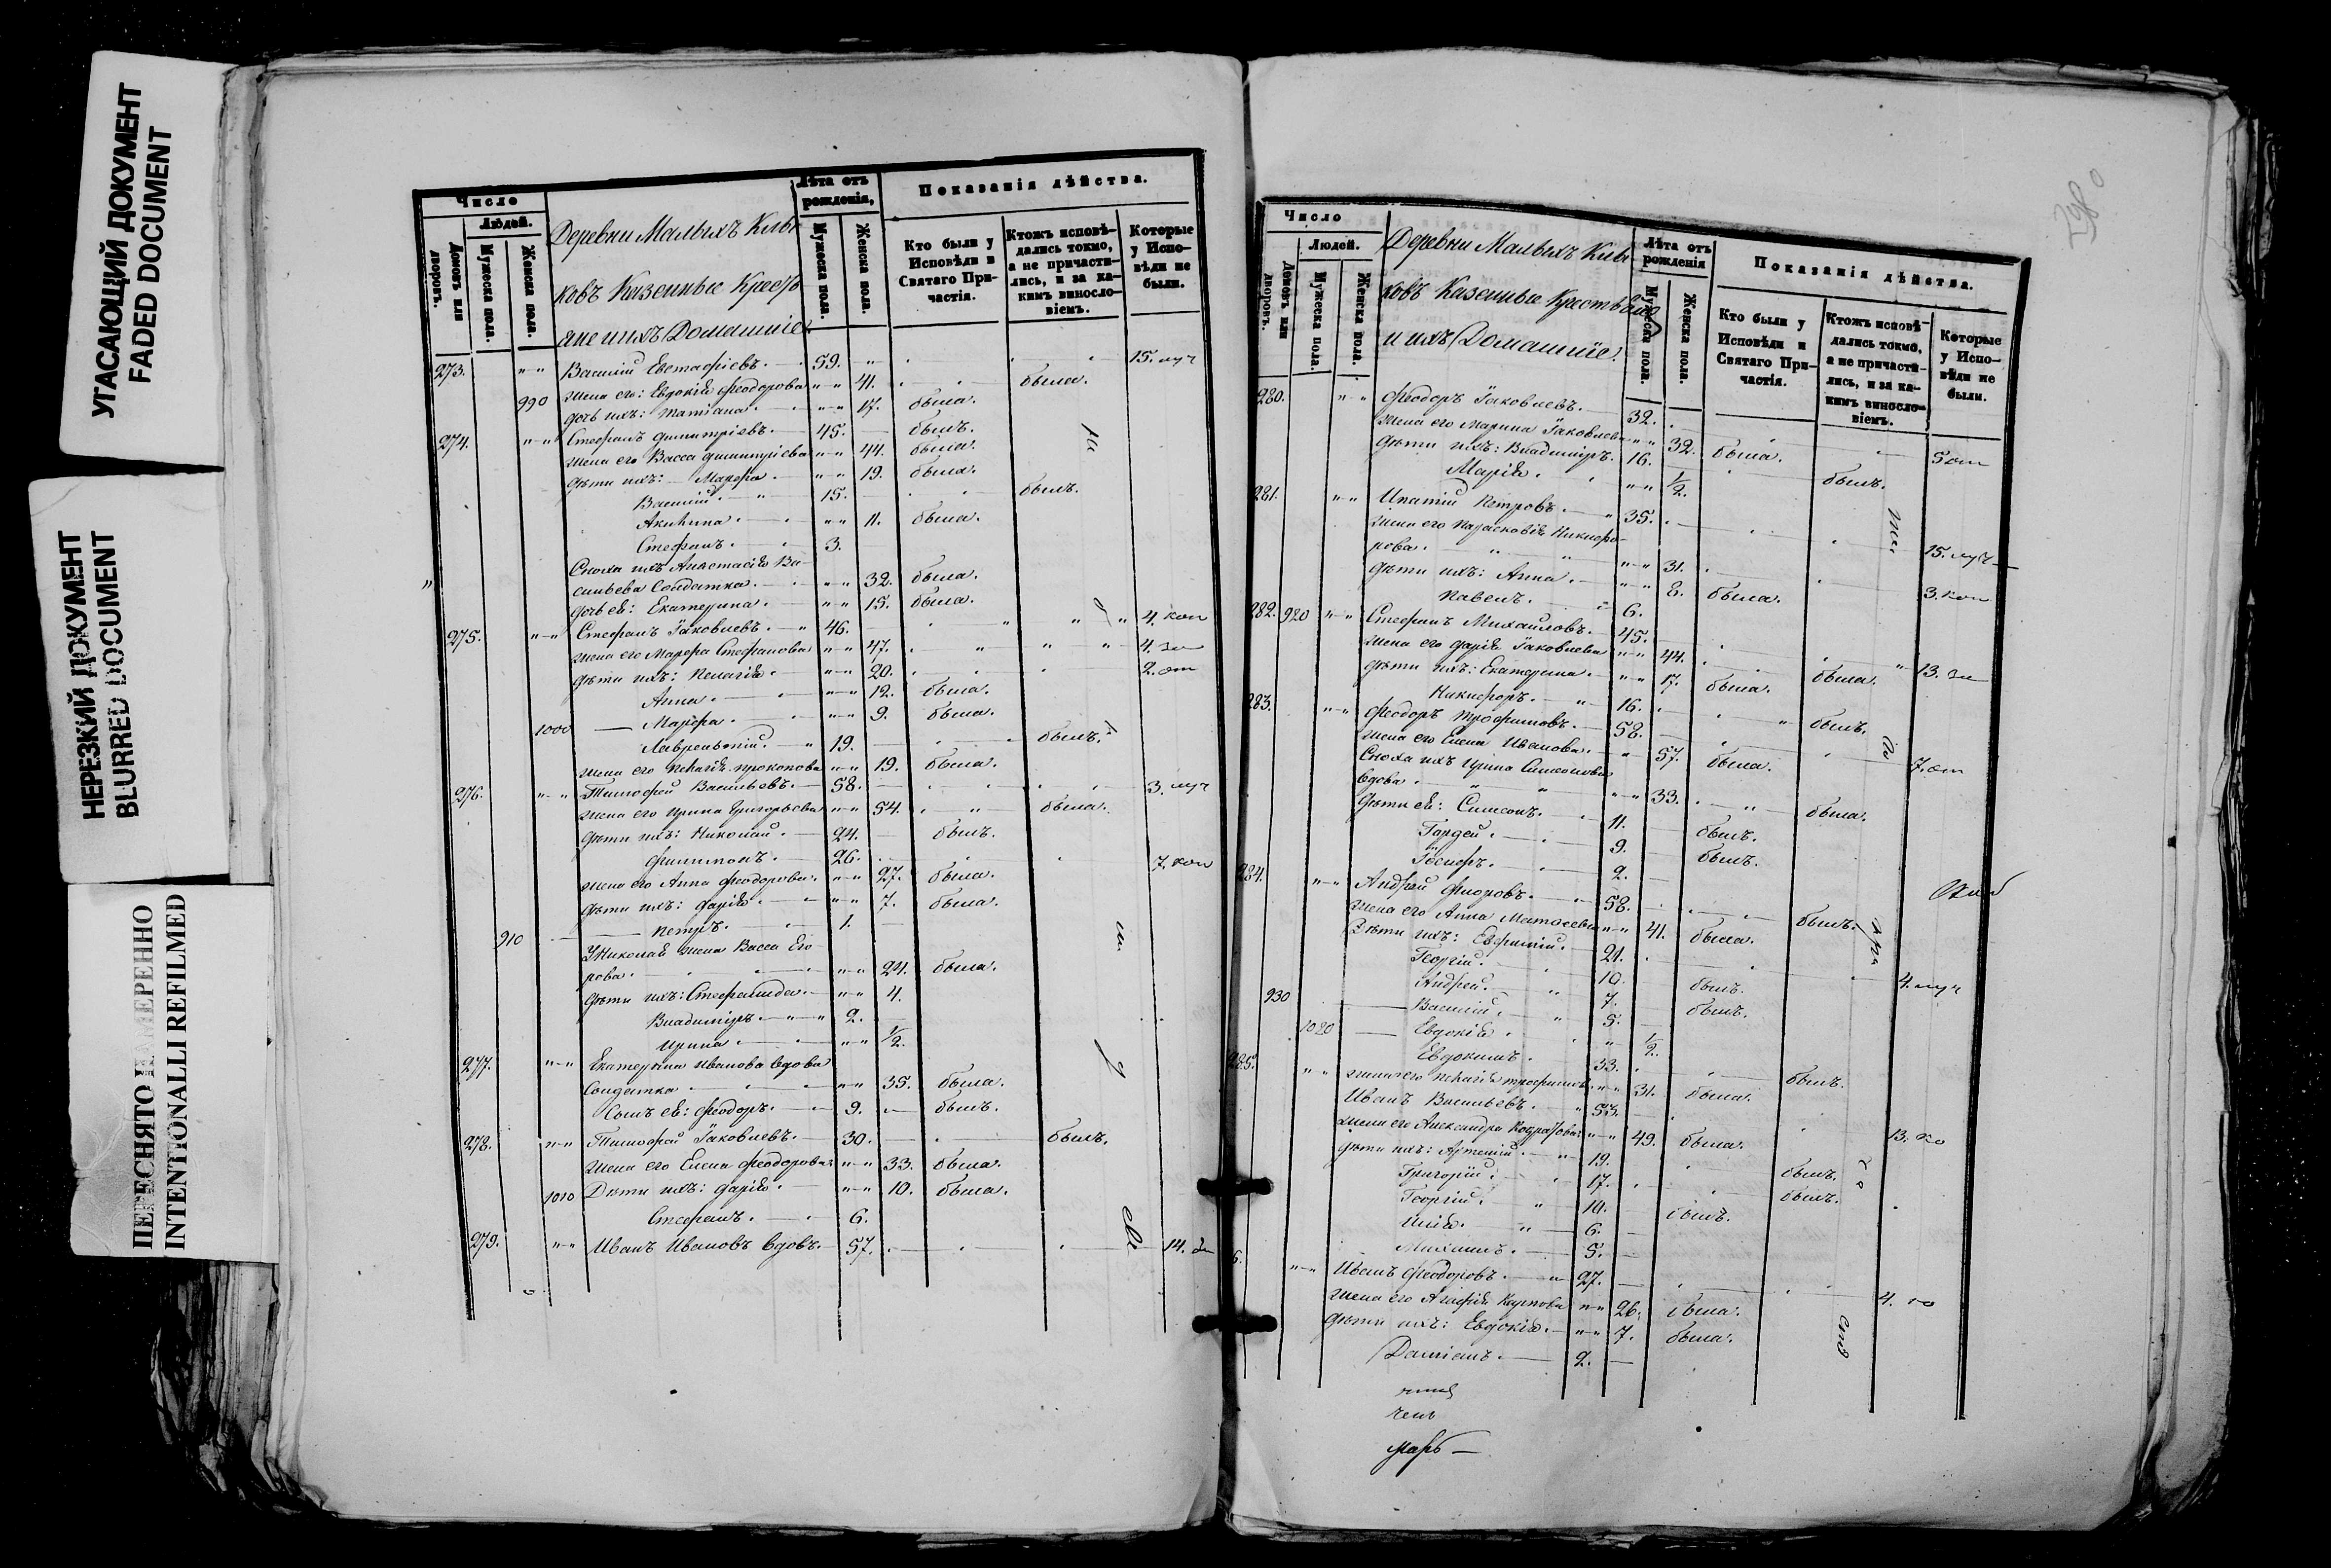 УГАСАЮЩИЙ ДОКУМЕНТ
FADED DOCUMENT
НЕРЕЗКИЙ ДОКУМЕНТ
BLURRED DOCUMENT
ПЕРЕСНЯТО НАМЕРЕННО
INTENTIONALLI REFILMED
Число
Людей.
Домовъ или дворовъ.
Мужеска пола.
Женска пола.
Деревни Малыхъ
ковъ Казенные Кресть
яне и ихъ Домашніе
Лѣта отъ рожденія,
Мужеска пола.
Женска пола.
Показанія дѣйства.
Кто были у Исповѣди и Святаго Причастія.
Ктожъ исповѣдались токмо, а не причастились, и за какимъ винословіемъ.
Которые у Исповѣди не были.
273. Василій Евстафіевъ. 59. 15.
жена его: Евдокія Феодорова 41. была.
990 дочь ихъ: Татіана. 17. была.
274. Стефанъ Димитріевъ. 45. былъ.
жена его Васса Димитріева 44. была.
дѣти ихъ: Марфа. 19. была.
Василій 15. былъ.
Акилина. 11. была.
Стефанъ. 3.
Сноха ихъ Анастасія Ва
сильева Солдатка. 32. была.
дочь ея: Екатерина. 15. была.
275. Стефанъ Іаковлевъ. 46. 4.
жена его Марфа Стефанова 47. 4.
дѣти ихъ: Пелагія. 20. 2.
Анна. 12. была.
1000 Марфа. 9. была.
Лаврентій. 19. былъ.
жена его Пелагія Прокопова 19. была.
276. Тимофей Васильевъ. 58. 3.
жена его Ирина Григорьева 54. была.
дѣти ихъ: Николай. 24. былъ.
Филимонъ. 26. 7.
жена его Анна Феодорова. 27. была.
дѣти ихъ: Дарія. 7. была.
910 Петръ. 1.
У Николая жена Васса Его
рова. 24. была.
дѣти ихъ: Стефанида. 4.
Владиміръ. 2.
Ирина 1/2.
277. Екатерина Иванова вдова
Солдатка 35. была.
Сынъ ея: Феодоръ. 9. былъ.
278. Тимофей Іаковлевъ. 30. былъ.
жена его Елена Феодорова 33. была.
1010 Дѣти ихъ: Дарія. 10. была.
Стефанъ. 6.
279. Иванъ Ивановъ вдовъ. 57. 14.
Число
Людей.
Домовъ или дворовъ.
Мужеска пола.
Женска пола.
Деревни Малыхъ
ковъ Казенные Крестьяне
и ихъ Домашніе.
Лѣта отъ рожденія
Мужеска пола.
Женска пола.
Показанія дѣйства.
Кто были у Исповѣди и Святаго Причастія.
Ктожъ исповѣдались токмо, а не причастились, и за какимъ винословіемъ.
Которые у Исповѣди не были.
280. Феодоръ Іаковлевъ. 32. 5
жена его Марина Іаковлева 32. была.
дѣти ихъ: Владиміръ. 16. былъ.
Марія. 1/2.
281. Ипатій Петровъ. 35. 15.
жена его Параскovія Никифо
рова. 31. 3.
дѣти ихъ: Анна. 8. была.
Павелъ. 6.
282. 920 Стефанъ Михайловъ. 45. 13.
жена его Дарія Іаковлева 44. была.
дѣти ихъ: Екатерина. 17. была.
Никифоръ. 16. былъ.
283. Феодоръ Трофимовъ. 58. 7.
жена его Елена Иванова. 57. была.
Сноха ихъ Ирина Симеонова
вдова. 33. была.
Дѣти ея: Симеонъ. 11. былъ.
Гордей. 9. былъ.
Іосифъ. 2.
284. Андрей Флоровъ. 58. былъ.
жена его Анна Матфеева 41. была.
Дѣти ихъ: Евфимій. 21. 4.
Георгій. 10. былъ.
Андрей. 7. былъ.
930 Василій. 5.
1020 Евдокія. 1/2.
Евдокимъ. 33. былъ.
жена его Пелагія Трофимов. 31. была.
285. Иванъ Васильевъ. 53. 13.
жена его Александра 49. была.
дѣти ихъ: Артемій. 19. былъ.
Григорій. 17. былъ.
Георгій. 10. былъ.
Илія. 6.
Михаилъ. 5.
6. Иванъ Феодоровъ. 27. 4.
жена его Агафія Карпова 26. была.
дѣти ихъ: Евдокія. 7. была.
Даміанъ. 2.